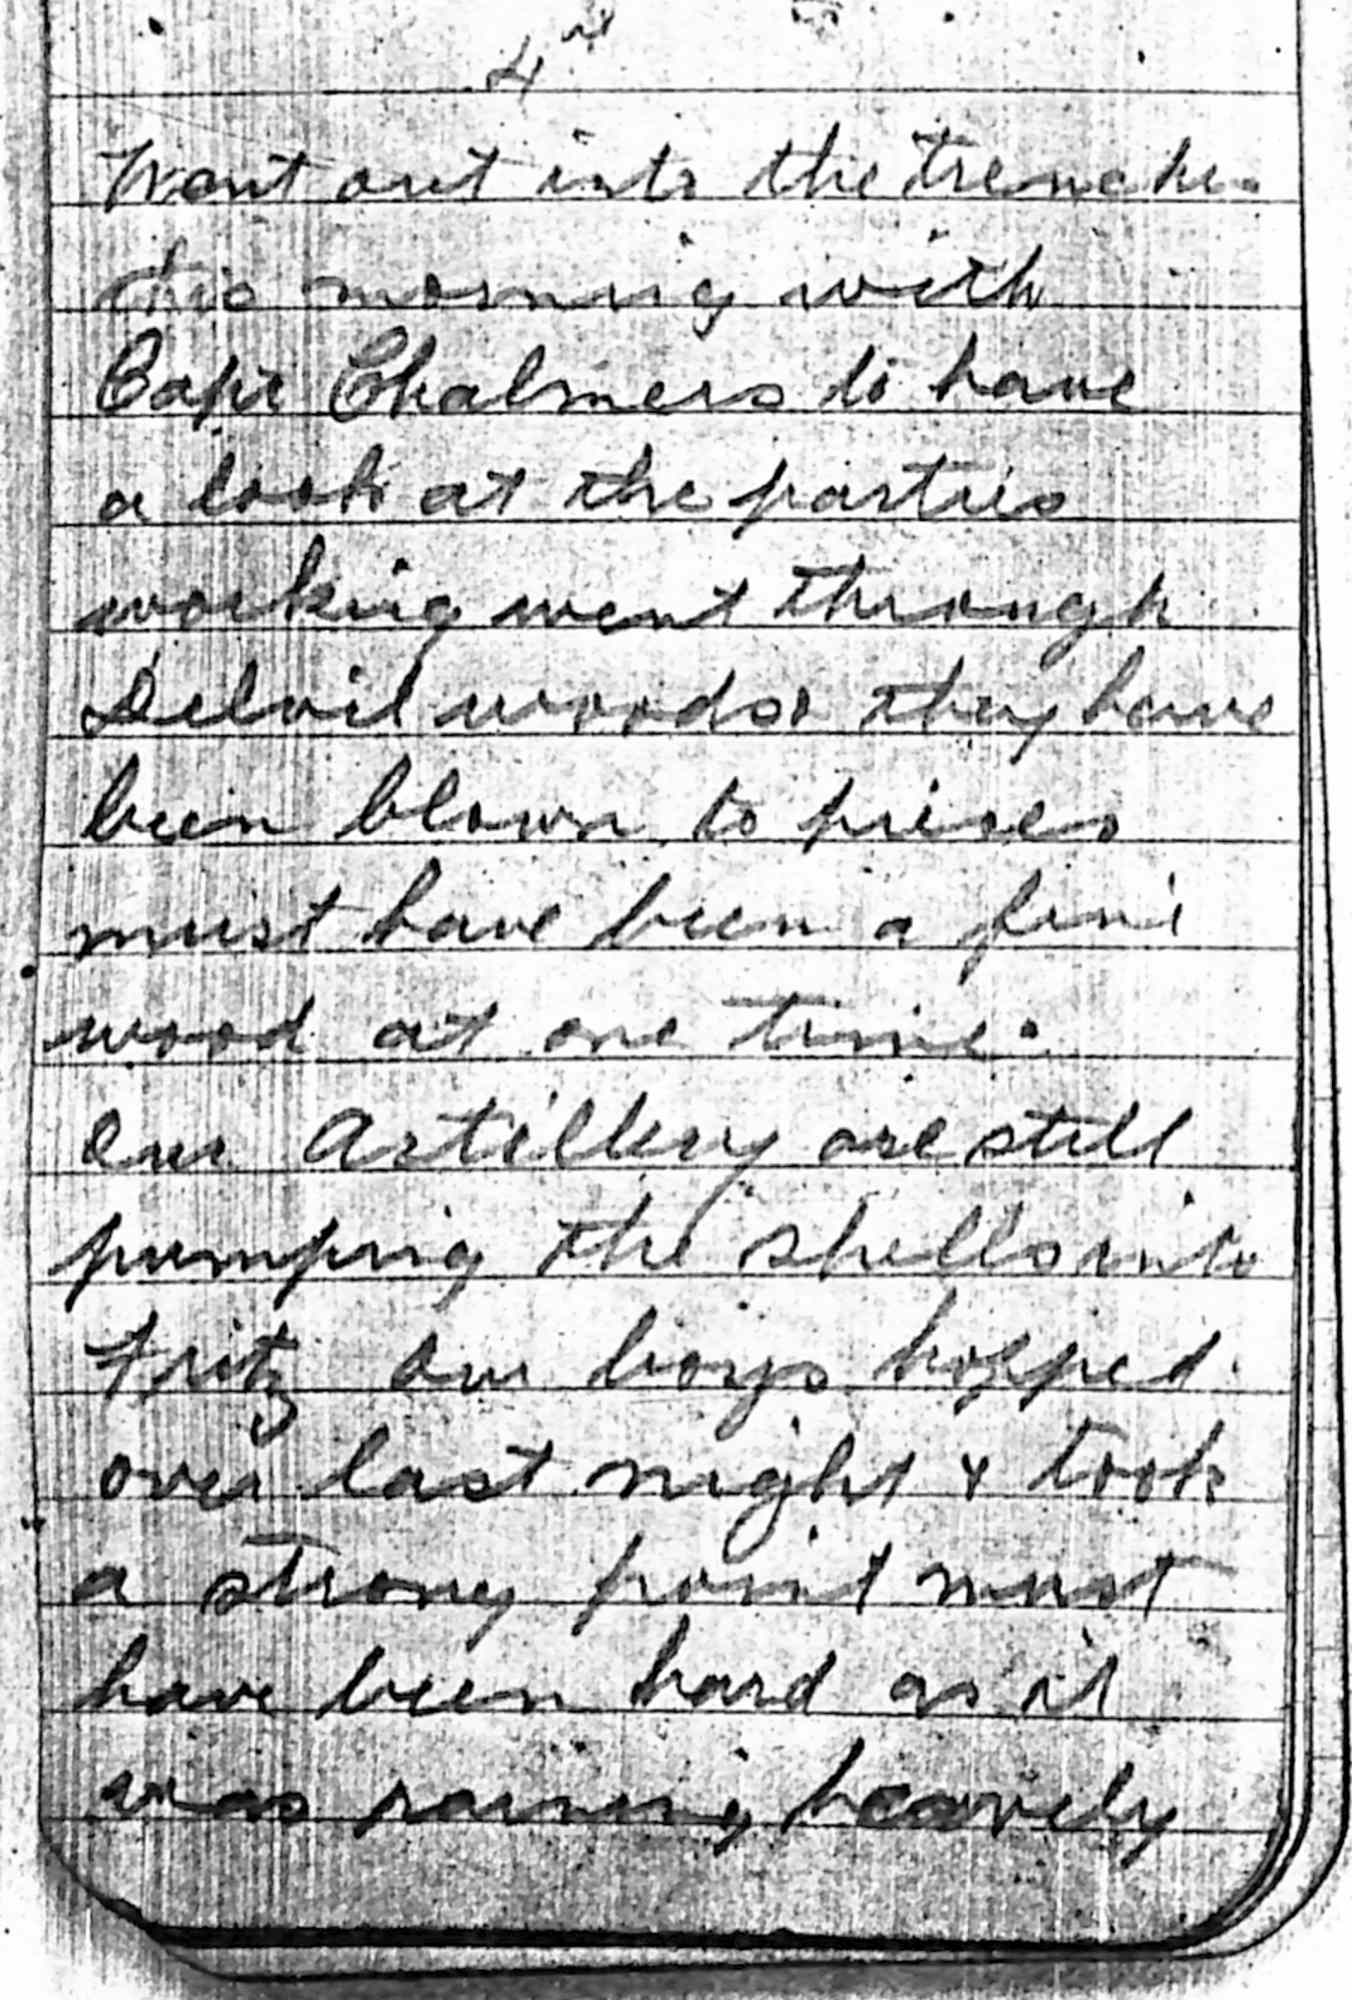 4th
Went out into the trenches
this morning with
Capt Chalmers to have
a look at the parties
working went through
Delvil woods & they have
been blown to pieces
must have been a fine
wood at one time.
Our Artillery are still
pumping the shells into
Fritz our boys hopped
over last night & took
a strong point must
have been hard as it
was raining heavely